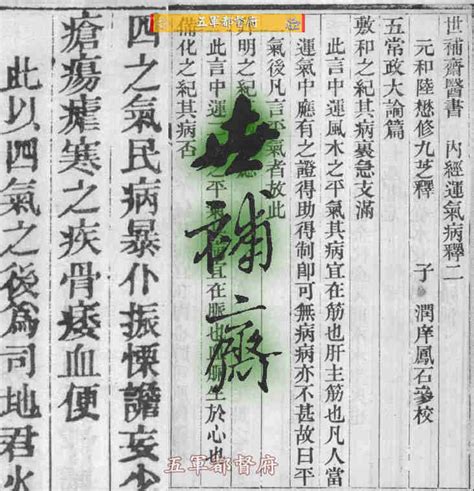 五軍都督府
世補齋醫書 內經運氣病釋二
元和陸懋修九芝釋 子 潤庠鳳石參校
五常政大論篇
敷和之紀其病裏急支滿
此言中運風木之平氣其病宜在筋也肝主筋也凡人當
運氣中應有之證得助得制即可無病病亦不甚故曰平
氣後凡言平氣者故此
升明之紀
此言中運
於心也
備化之紀其病否
世補齋
四之氣民病暴仆振慄譫妄少
瘡瘍瘧寒之疾骨痿血便
此以四氣之後為司地君火
五軍都督府